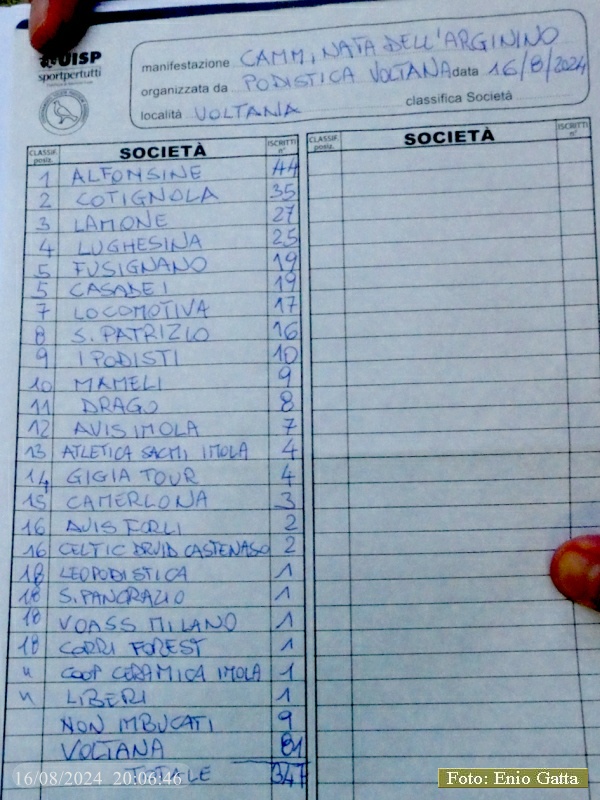 UISP
sportpertutti
manifestazione CAMMINATA DELL'ARGININO
organizzata da PODISTICA VOLTANA data 16/8/2024
località VOLTANA classifica Società
CLASSIF. posiz. SOCIETÀ ISCRITTI n° CLASSIF. posiz. SOCIETÀ ISCRITTI n°
1 ALFONSINE 44
2 COTIGNOLA 35
3 LAMONE 27
4 LUGHESINA 25
5 FUSIGNANO 19
5 CASADEI 19
7 LOCOMOTIVA 17
8 S. PATRIZIO 16
9 I PODISTI 10
10 MAMELI 9
11 DRAGO 8
12 AVIS IMOLA 7
13 ATLETICA SACMI IMOLA 4
14 GIGIA TOUR 4
15 CAMERLONA 3
16 AVIS FORLI 2
16 CELTIC DRUID CASTENASO 2
18 LEOPODISTICA 1
18 S. PANCRAZIO 1
18 VOASS MILANO 1
18 CORRI FOREST 1
" COOP CERAMICA IMOLA 1
" LIBERI 1
NON IMBUCATI 9
VOLTANA 81
TOTALE 347
16/08/2024 20:06:46
Foto: Enio Gatta